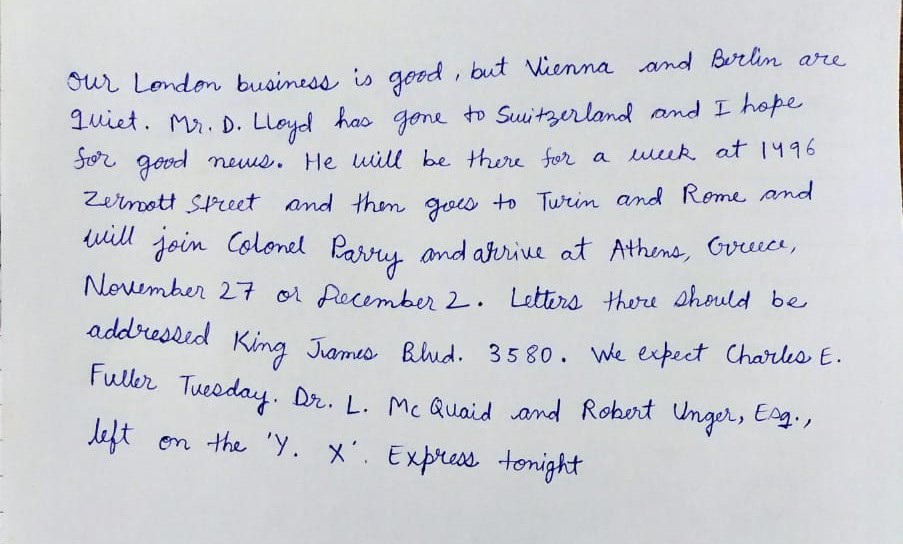 Our London business is good, but Vienna and Berlin are
quiet. Mr. D. Lloyd has gone to Switzerland and I hope
for good news. He will be there for a week at 1496
Zermott Street and then goes to Turin and Rome and
will join Colonel Parry and arrive at Athens, Greece,
November 27 or December 2. Letters there should be
addressed King James Blvd. 3580. We expect Charles E.
Fuller Tuesday. Dr. L. McQuaid and Robert Unger, Esq.,
left on the 'Y. X'. Express tonight